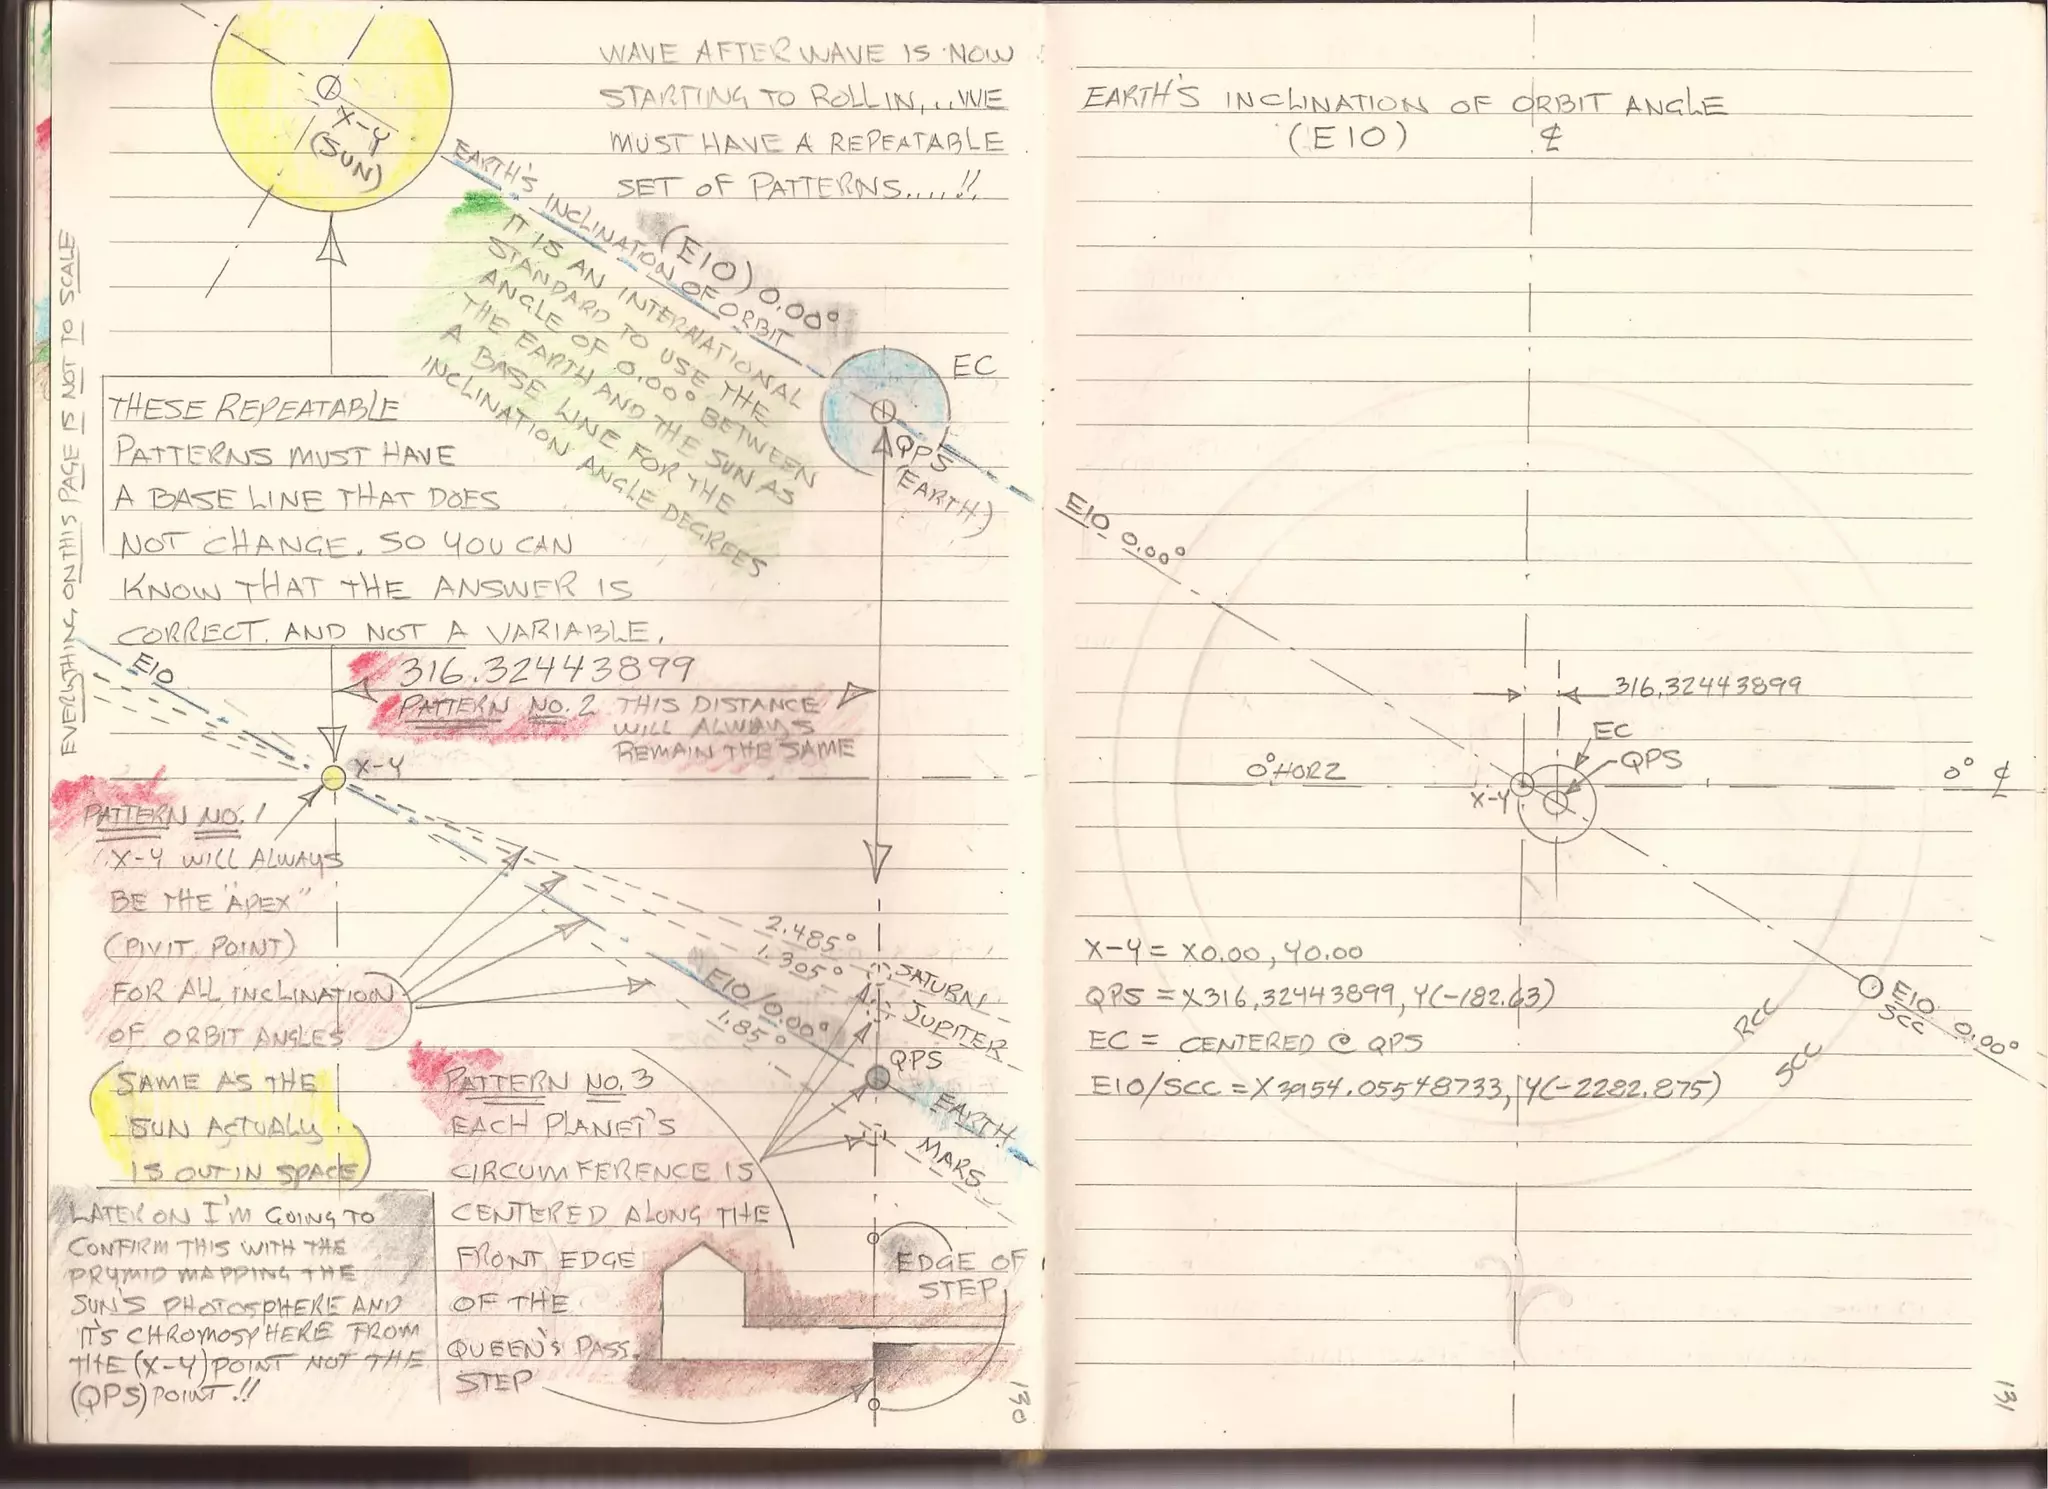 WAVE AFTER WAVE IS NOW
STARTING TO ROLL IN,..WE
MUST HAVE A REPEATABLE
SET OF PATTERNS....!!
X-Y
(SUN)
EARTH'S INCLINATION OF ORBIT
(EIO) 0.00°
IT IS AN INTERNATIONAL
STANDARD TO USE THE
ANGLE OF 0.00° BETWEEN
THE EARTH AND THE SUN AS
A BASE LINE FOR THE
INCLINATION ANGLE DEGREES
EC
QPS
(EARTH)
EVERYTHING ON THIS PAGE IS NOT TO SCALE
THESE REPEATABLE
PATTERNS MUST HAVE
A BASE LINE THAT DOES
NOT CHANGE. SO YOU CAN
KNOW THAT THE ANSWER IS
CORRECT. AND NOT A VARIABLE.
EIO
316.32443899
PATTERN NO. 2 THIS DISTANCE
WILL ALWAYS
REMAIN THE SAME
X-Y
PATTERN NO. 1
X-Y WILL ALWAYS
BE THE "APEX"
(PIVIT POINT)
FOR ALL INCLINATION
OF ORBIT ANGLES
(SAME AS THE
SUN ACTUALY
IS OUT IN SPACE)
2.485°
1.305°
EIO/0.00°
1.85°
SATURN
JUPITER
QPS
EARTH
MARS
PATTERN NO. 3
EACH PLANET'S
CIRCUMFERENCE IS
CENTERED ALONG THE
FRONT EDGE
OF THE
QUEEN'S PASS.
STEP
EDGE OF
STEP
LATER ON I'M GOING TO
CONFIRM THIS WITH THE
PRYMID MAPPING THE
SUN'S PHOTOSPHERE AND
IT'S CHROMOSPHERE FROM
THE (X-Y) POINT NOT THE
(QPS) POINT.!!
130
EARTH'S INCLINATION OF ORBIT ANGLE
(EIO) ℄
EIO 0.00°
316.32443899
EC
QPS
0° HORZ
X-Y
0° ℄
X-Y = X0.00, Y0.00
QPS = X316.32443899, Y(-182.63)
EC = CENTERED @ QPS
EIO/SCC = X3954.05548733, Y(-2282.875)
RCC
SCC
EIO 0.00°
SCC
131